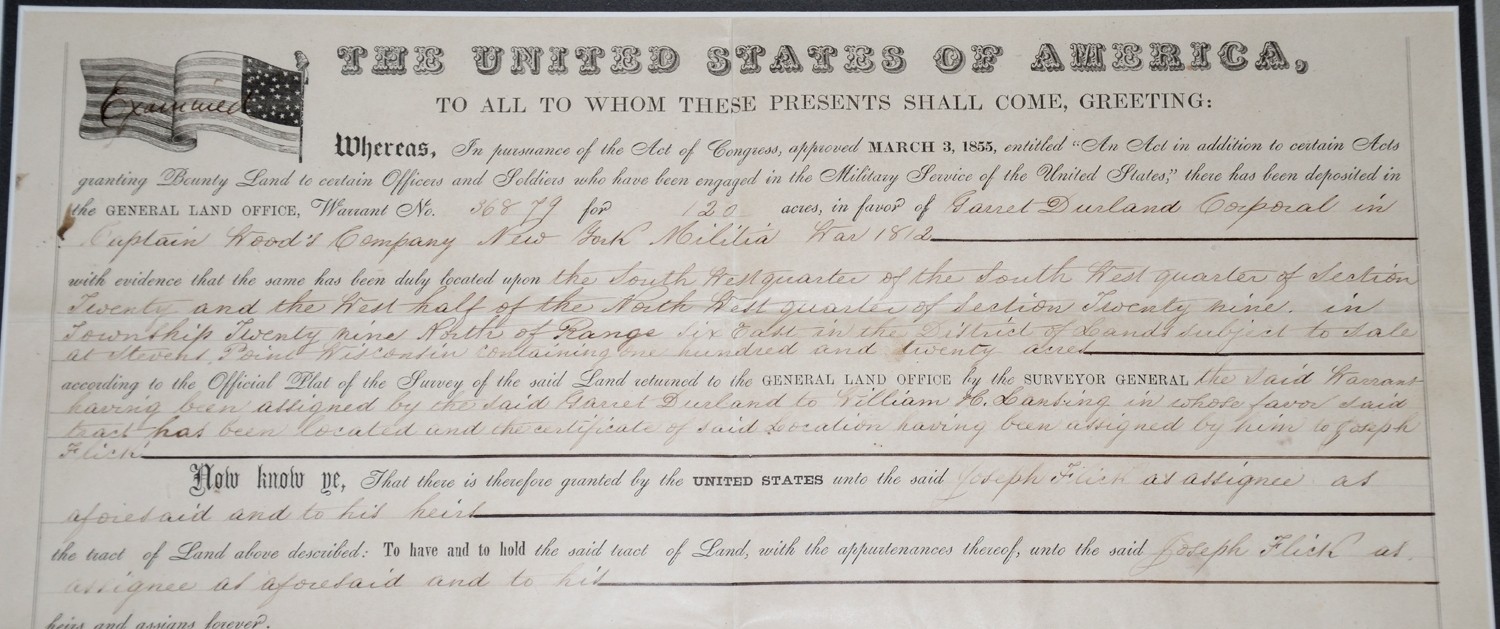 THE UNITED STATES OF AMERICA,
Examined
TO ALL TO WHOM THESE PRESENTS SHALL COME, GREETING:
Whereas, In pursuance of the Act of Congress, approved MARCH 3, 1855, entitled "An Act in addition to certain Acts
granting Bounty Land to certain Officers and Soldiers who have been engaged in the Military Service of the United States," there has been deposited in
the GENERAL LAND OFFICE, Warrant No. 36879 for 120 acres, in favor of Garret Durland Corporal in
Captain Wood's Company New York Militia War 1812
with evidence that the same has been duly located upon the South West quarter of the South West quarter of Section
Twenty and the West half of the North West quarter of Section Twenty nine. in
Township Twenty nine North of Range Six East in the District of Lands subject to sale
at Stevens Point Wisconsin containing one hundred and twenty acres
according to the Official Plat of the Survey of the said Land returned to the GENERAL LAND OFFICE by the SURVEYOR GENERAL the said Warrant
having been assigned by the said Garret Durland to William H. Lansing in whose favor said
tract has been located and the certificate of said Location having been assigned by him to Joseph
Flick
Now know ye, That there is therefore granted by the UNITED STATES unto the said Joseph Flick as assignee as
aforesaid and to his heirs
the tract of Land above described: To have and to hold the said tract of Land, with the appurtenances thereof, unto the said Joseph Flick as
assignee as aforesaid and to his
heirs and assigns forever.